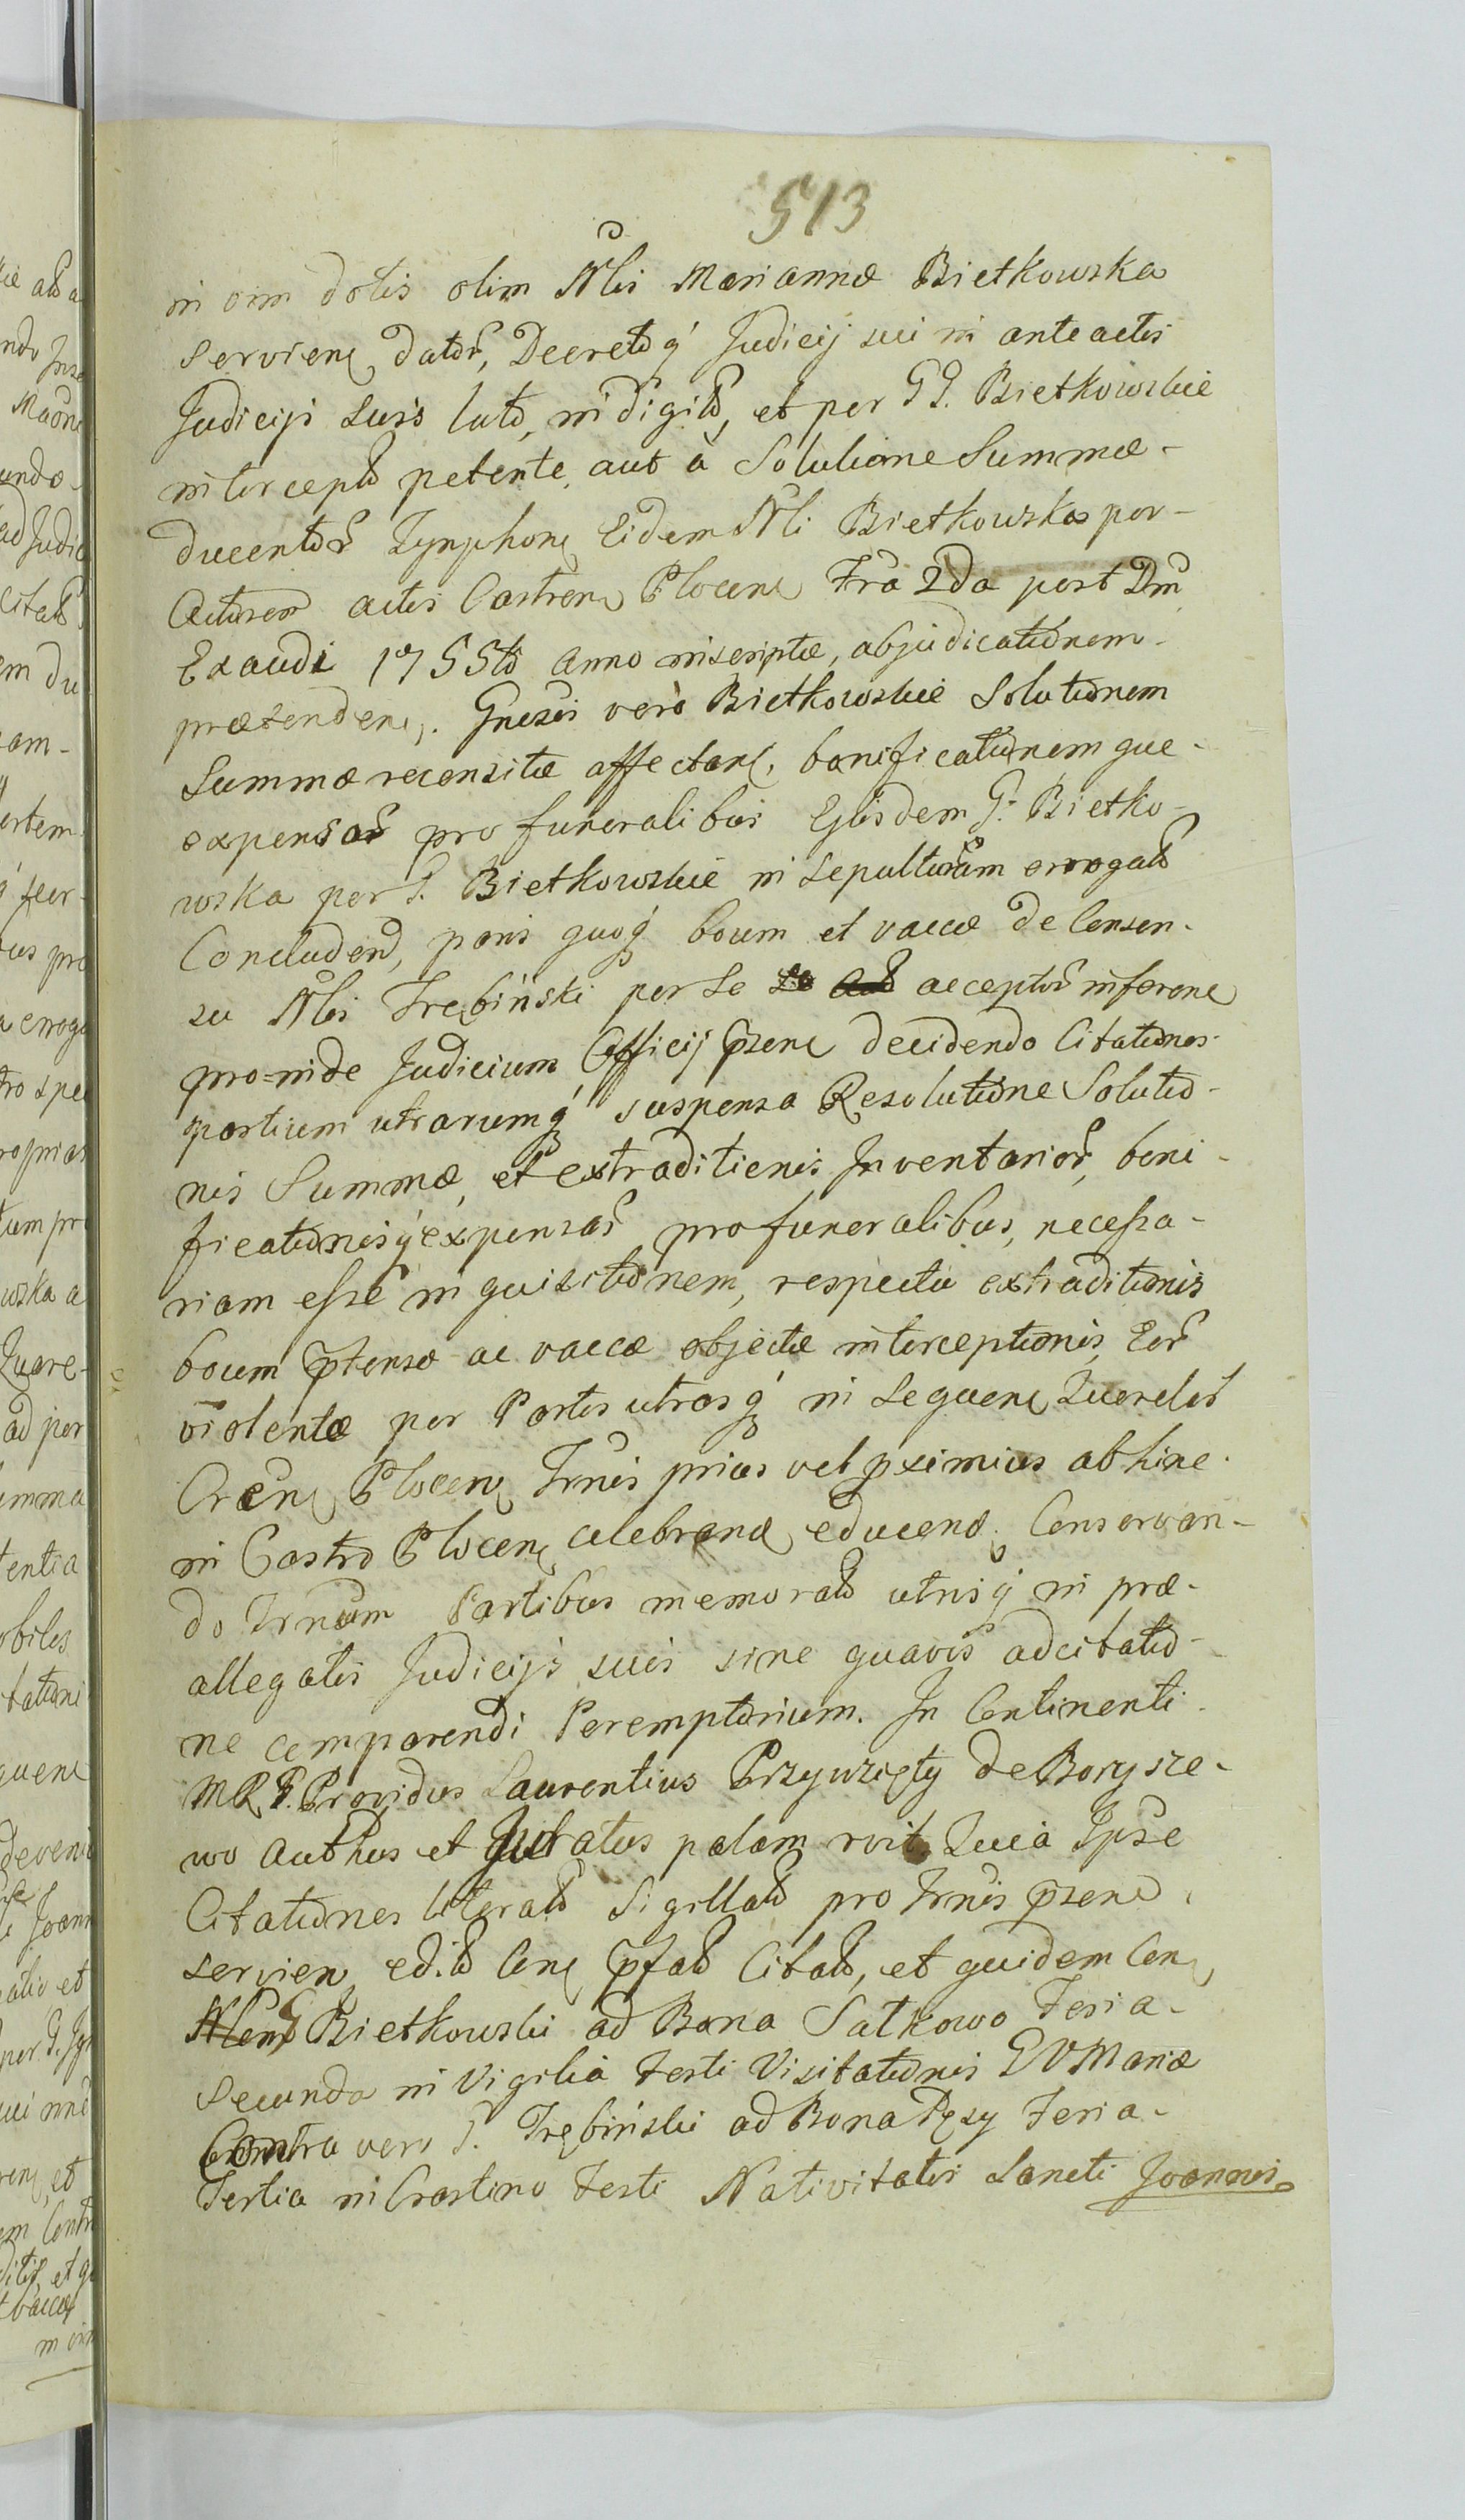 513
in vim dotis olim Nlis Mariannæ Bietkowska
servien, dator, Decretoq́ Judicij sui in anteactis
Judicijs suis lato, indigito, et per GG. Bietkowskie
intercepto petente, aut à Solutione Summæ-
ducentor Tynphon, Eidem Nli Bietkowska per-
Actorem actis Castren, Plocen, Fra 2da post Dm
Exaudi 1755to Anno inscriptæ, abjudicationem-
prætenden,. Gnesis verò Bietkowskie Solutionem
Summæ recensitæ affectan, bonificationemque-
expensar pro funeralibus Ejusdem G. Bietko-
wska per G. Bietkowskie in sepulturam erogat
Concludend, paris quoq́ boum et vaccæ de Consen-
su Nlis Trębiński per se acceptor inferen
pro=inde Judicium Officij pzen decidendo Citationes-
partium utrarumq́ suspensa Resolutione Solutio-
nis Summæ, et extraditionis Inventarior, boni-
ficationisq́ expensar pro funeralibus, necessa-
riam esse inquisitionem, respectu extraditionis
boum ptensæ ac vaccæ objectæ interceptionis, Eor
violentæ per Partes utrasq́ in sequen, Querelar
Plocen, Trnis prius vel pximius abhinc
in Castro Plocen, celebrand, educend. Conservan-
do Trnum Partibus memorat utrisq́ in præ-
allegatis Judicijs suis sine quavis adcitatio-
ne comparendi Peremptorium. In Continenti
Providus Laurentius Przywzięty de Borysze-
wo Authus et Juratus palam rvit, Quia Ipse
Citationes literat Sigillat pro Trnis pzend
servien, edit Con, pfat Citat, et quidem Con,
G Bietkowski ad Bona Satkowo Feria-
Secunda in Vigilia Festi Visitationis BVMariæ
Contra vero G. Trębiński ad Bona Ręsy Feria-
Tertia in Crastino Festi Nativitatis Sancti Joannis